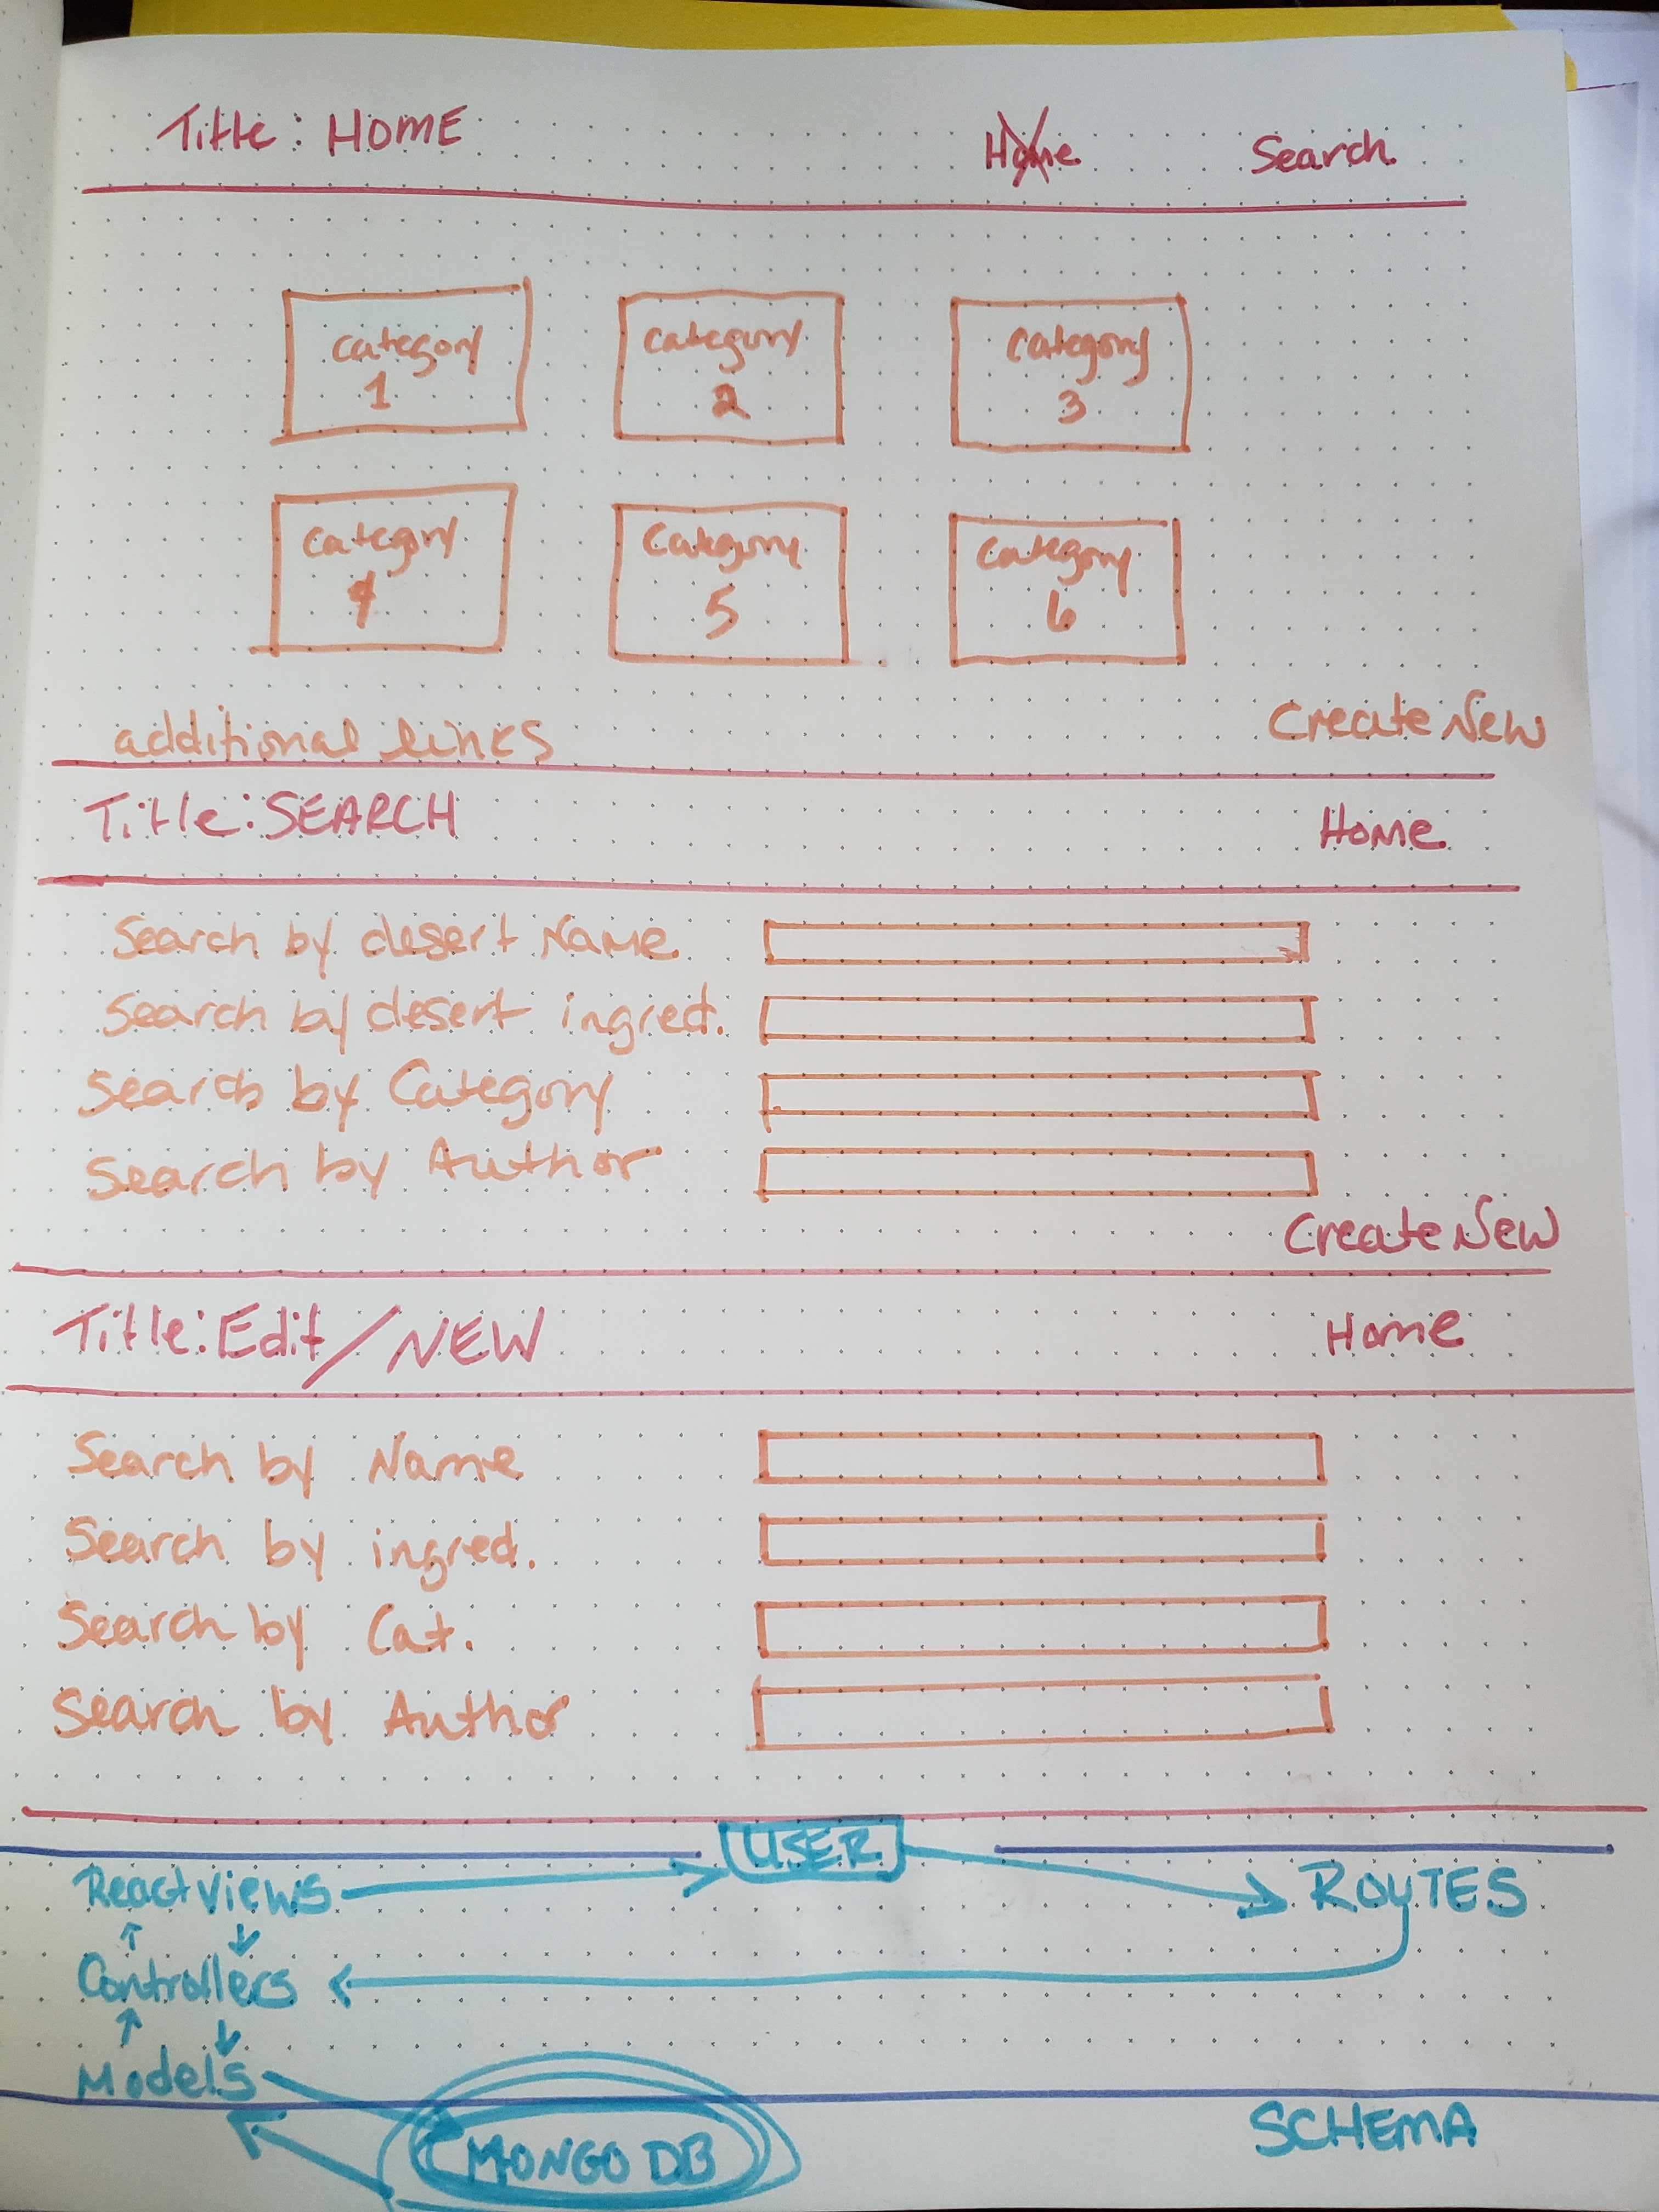 Title: HOME Home Search
category category category
1 2 3
category category category
4 5 6
additional links Create New
Title: SEARCH Home
Search by desert Name
Search by desert ingred.
Search by Category
Search by Author
Create New
Title: Edit/NEW Home
Search by Name
Search by ingred.
Search by Cat.
Search by Author
USER
React Views ROUTES
Controllers
Models
MONGO DB SCHEMA